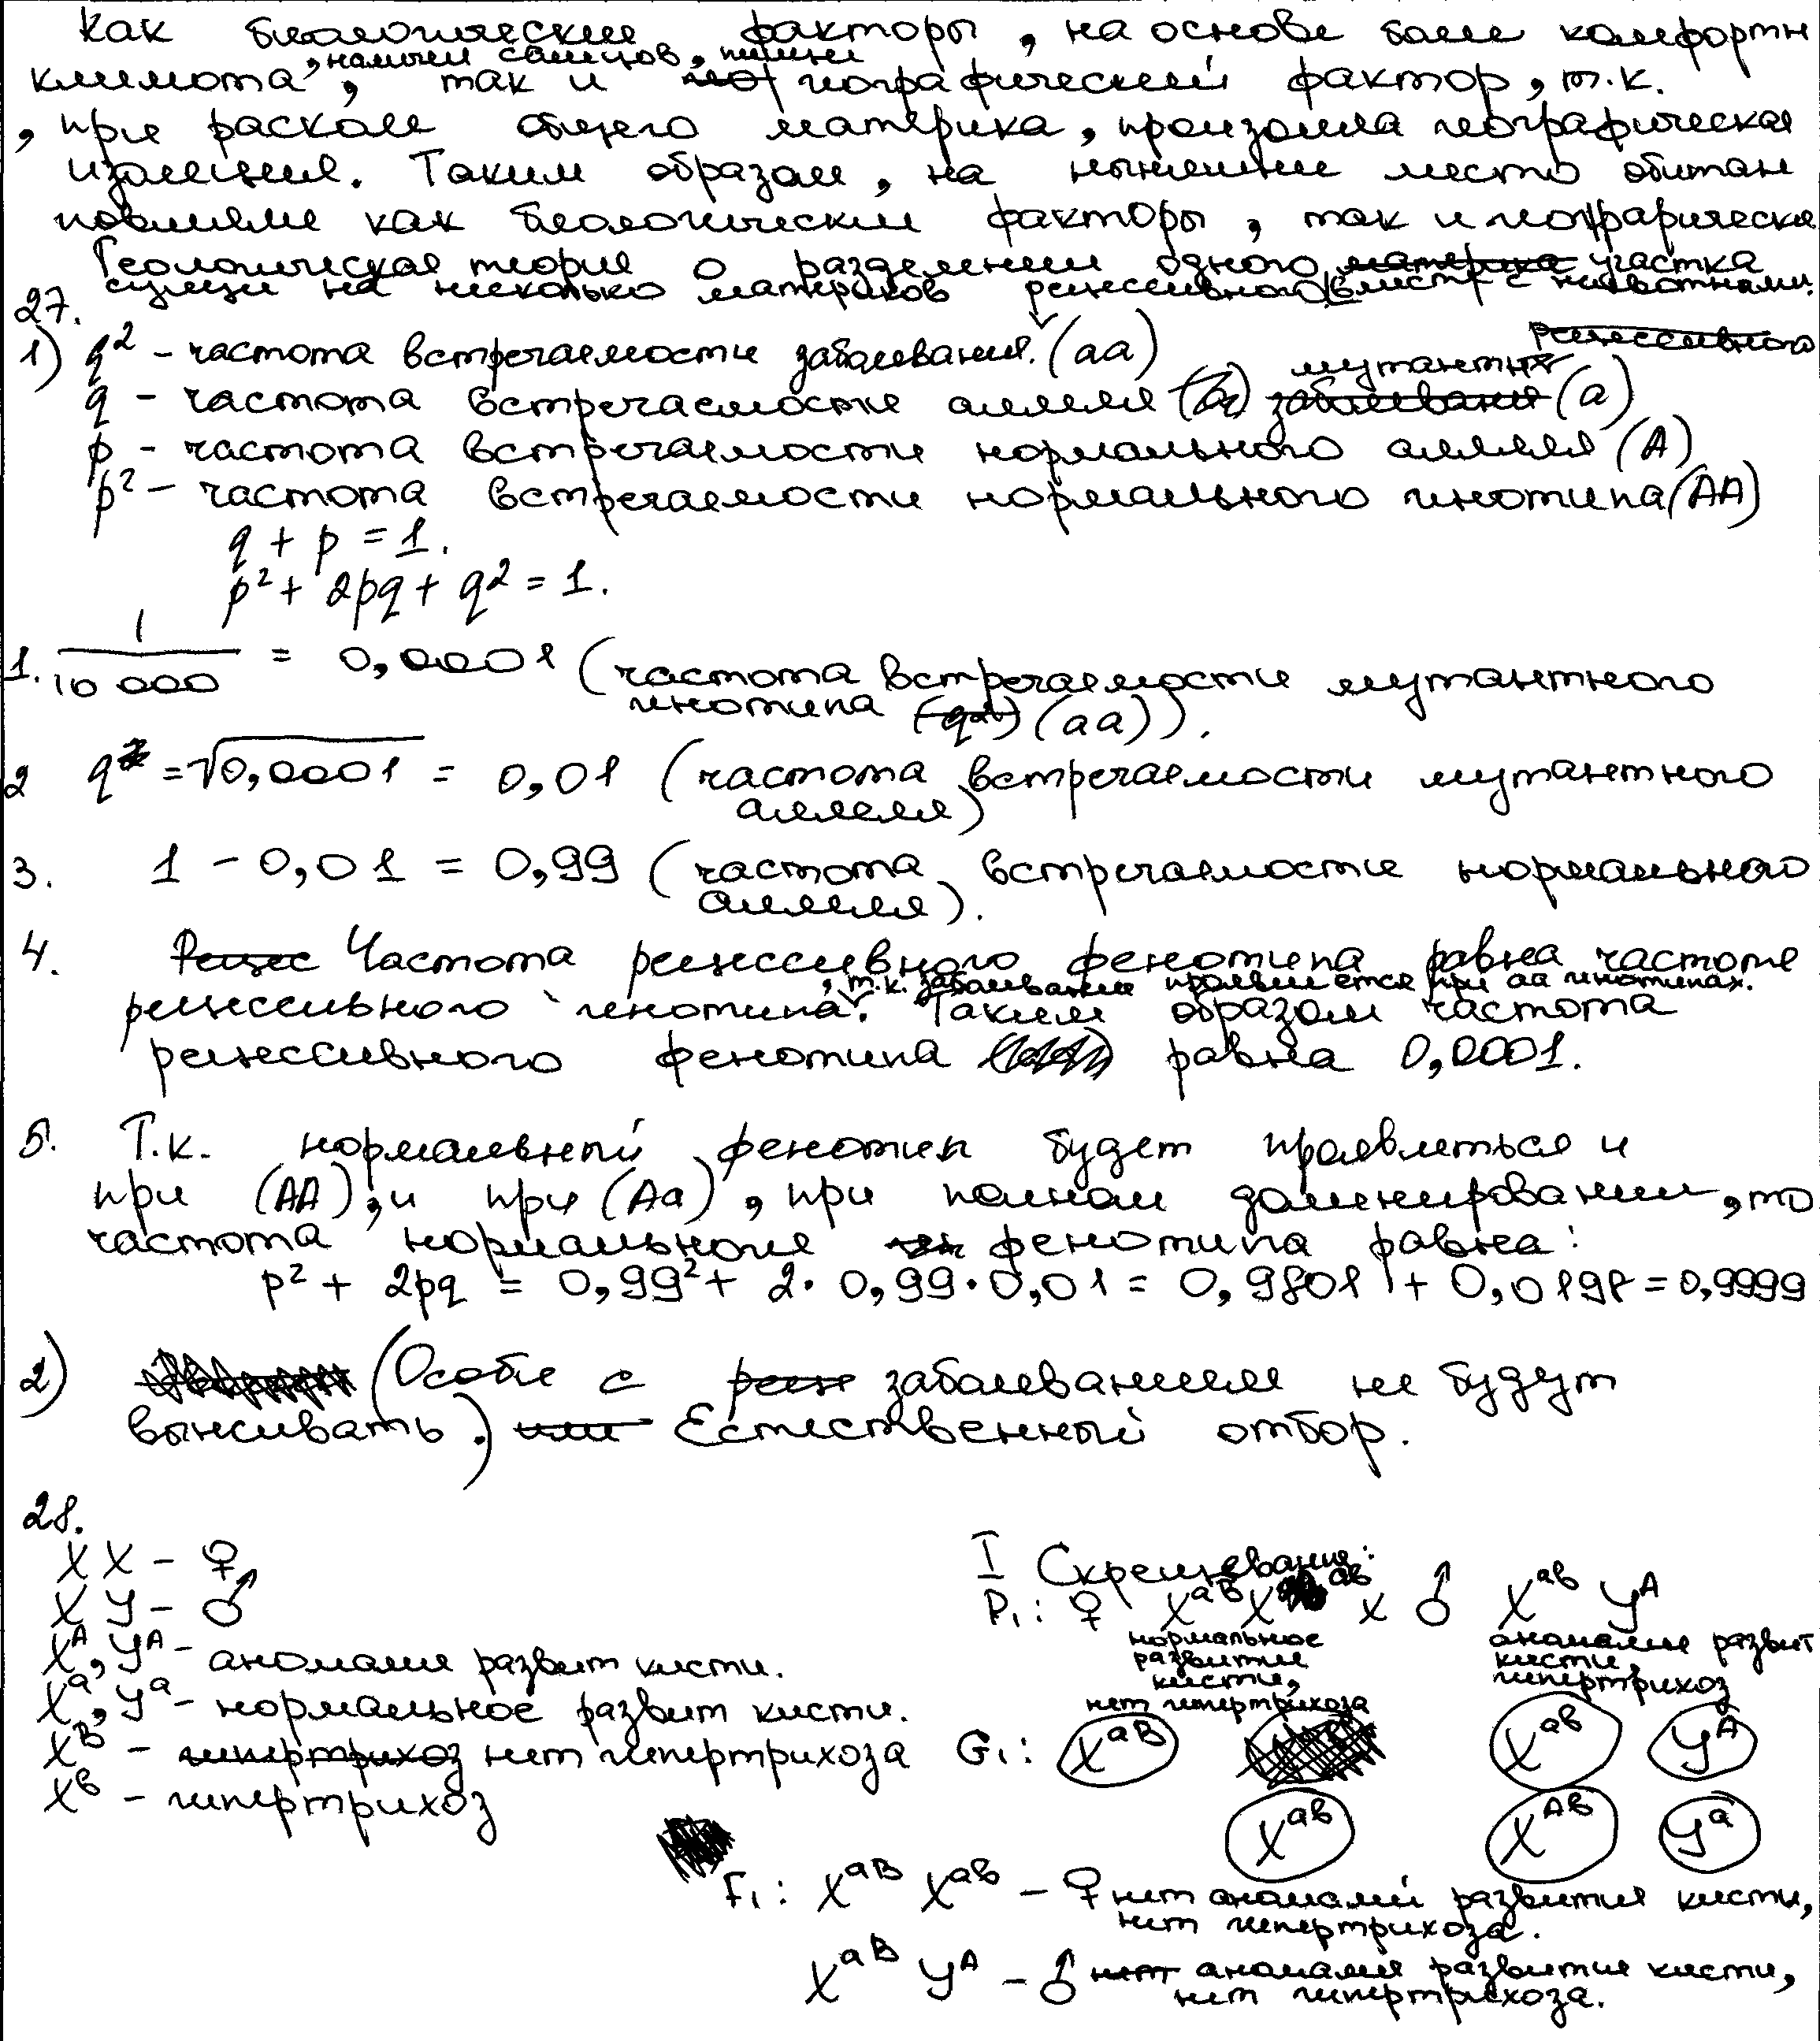 как биологические факторы, на основе более комфортн
климата, наличии самцов, пищи, так и географический фактор, т.к.
, при расколе общего материка, произошла географическая
изоляция. Таким образом, на нынешнее место обитан
повлияли как биологические факторы, так и географическ
Геологическая теория о разделении одного участка
суши на несколько материков вместе с животными.
27.
1) q² - частота встречаемости рецессивного заболевания. (аа)
q - частота встречаемости аллеля мутантн (а)
p - частота встречаемости нормального аллеля (А)
p² - частота встречаемости нормального генотипа (АА)
q + p = 1.
p² + 2pq + q² = 1.
1. 1/10 000 = 0,0001 (частота встречаемости мутантного
генотипа (аа)).
2 q = √0,0001 = 0,01 (частота встречаемости мутантного
аллеля)
3. 1 - 0,01 = 0,99 (частота встречаемости нормального
аллеля).
4. Частота рецессивного фенотипа равна частоте
рецессивного генотипа, т.к. заболевание проявляется при аа генотипах. Таким образом частота
рецессивного фенотипа равна 0,0001.
5. Т.к. нормальный фенотип будет проявляться и
при (АА), и при (Аа), при полном доминировании, то
частота нормального фенотипа равна:
p² + 2pq = 0,99² + 2·0,99·0,01 = 0,9801 + 0,0198 = 0,9999
2) (Особи с заболеванием не будут
выживать.) Естественный отбор.
28.
XX - ♀
XY - ♂
X^A, Y^A - аномалия развит кисти.
X^a, Y^a - нормальное развит кисти.
X^B - нет гипертрихоза
X^b - гипертрихоз
I Скрещевание:
P₁: ♀ X^aB X^ab x ♂ X^ab Y^A
нормальное развитие кисти, нет гипертрихоза
аномалия развит кисти, гипертрихоз
G₁: X^aB X^ab Y^A
X^ab X^Ab Y^a
F₁: X^aB X^ab - ♀ нет аномалии развития кисти,
нет гипертрихоза.
X^aB Y^A - ♂ аномалия развития кисти,
нет гипертрихоза.